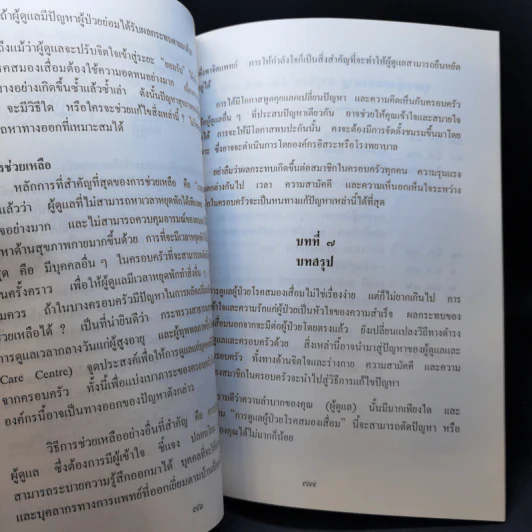 ถ้าผู้ดูแลมีปัญหาผู้ป่วยย่อมได้รับผลกระทบตามมาด้วย
ถึงแม้ว่าผู้ดูแลจะปรับจิตใจเข้าสู่ระยะ "ยอมรับ"
โรคสมองเสื่อมต้องใช้ความอดทนอย่างมาก
อย่างเกิดขึ้นซ้ำแล้วซ้ำเล่า ดังนั้นปัญหา
จะมีวิธีใด หรือใครจะช่วยแก้ไขสิ่งเหล่านี้ ?
หาทางออกที่เหมาะสมได้
การช่วยเหลือ
หลักการที่สำคัญที่สุดของการช่วยเหลือ คือ
แล้วว่า ผู้ดูแลที่ไม่สามารถหาเวลาหยุดพักได้
อย่างมาก และไม่สามารถควบคุมอารมณ์ของตน
หาด้านสุขภาพกายมากขึ้นด้วย การที่จะมีเวลา
คือ มีบุคคลอื่น ๆ ในครอบครัวที่จะ
ครั้งคราว เพื่อให้ผู้ดูแลมีเวลาหยุดพักทำสิ่งอื่น ๆ
ควร ถ้าในบางครอบครัวมีปัญหาใน
ช่วยเหลือได้ ? เป็นที่น่ายินดีว่า กระทรวง
การดูแลเวลากลางวันแก่ผู้สูงอายุ และผู้
Care Centre) จุดประสงค์เพื่อให้การดูแลแก่
จากครอบครัว ทั้งนี้เพื่อแบ่งเบาภาระของครอบครัว
องค์กรนี้อาจเป็นทางออกของปัญหาดังกล่าว
วิธีการช่วยเหลืออย่างอื่นที่สำคัญ คือ
ผู้ดูแล ซึ่งต้องการมีผู้เข้าใจ ชี้แจง ปลอบ
สามารถระบายความรู้สึกออกมาได้ บุคคลที่จะ
และบุคลากรทางการแพทย์ที่ออกเยี่ยมตามบ้าน
๗๖
จิตแพทย์ การให้กำลังใจก็เป็นสิ่งสำคัญที่จะทำให้ผู้ดูแลสามารถยืนหยัด
การได้มีโอกาสพูดคุยแลกเปลี่ยนปัญหา และความคิดเห็นกับครอบครัว
ผู้ดูแลอื่น ๆ ที่ประสบปัญหาเดียวกัน อาจช่วยให้คุณเข้าใจและสบายใจ
ได้ การจะให้มีโอกาสพบปะกันนั้น คงจะต้องมีการจัดตั้งชมรมขึ้นมาโดย
ซึ่งอาจจะดำเนินการโดยองค์กรอิสระหรือโรงพยาบาล
อย่าลืมว่าผลกระทบเกิดขึ้นต่อสมาชิกในครอบครัวทุกคน ความรุนแรง
แตกต่างกันไป เวลา ความสามัคคี และความเห็นอกเห็นใจระหว่าง
ในครอบครัวจะเป็นหนทางแก้ปัญหาเหล่านี้ได้ที่สุด
บทที่ ๗
บทสรุป
การดูแลผู้ป่วยโรคสมองเสื่อมไม่ใช่เรื่องง่าย แต่ก็ไม่ยากเกินไป การ
เข้าใจและความรักแก่ผู้ป่วยเป็นหัวใจของความสำเร็จ ผลกระทบของ
นอกจากจะมีต่อผู้ป่วยโดยตรงแล้ว ยังเปลี่ยนแปลงวิถีทางดำรง
ดูแลและครอบครัวด้วย สิ่งเหล่านี้อาจนำมาสู่ปัญหาของผู้ดูแลและ
ครอบครัว ทั้งทางด้านจิตใจและร่างกาย ความสามัคคี และความ
สมาชิกในครอบครัวจะนำไปสู่วิธีการแก้ไขปัญหา
ดีว่าความลำบากของคุณ (ผู้ดูแล) นั้นมีมากเพียงใด และ
"การดูแลผู้ป่วยโรคสมองเสื่อม" นี้จะสามารถตัดปัญหา หรือ
ของคุณได้ไม่มากก็น้อย
๗๗